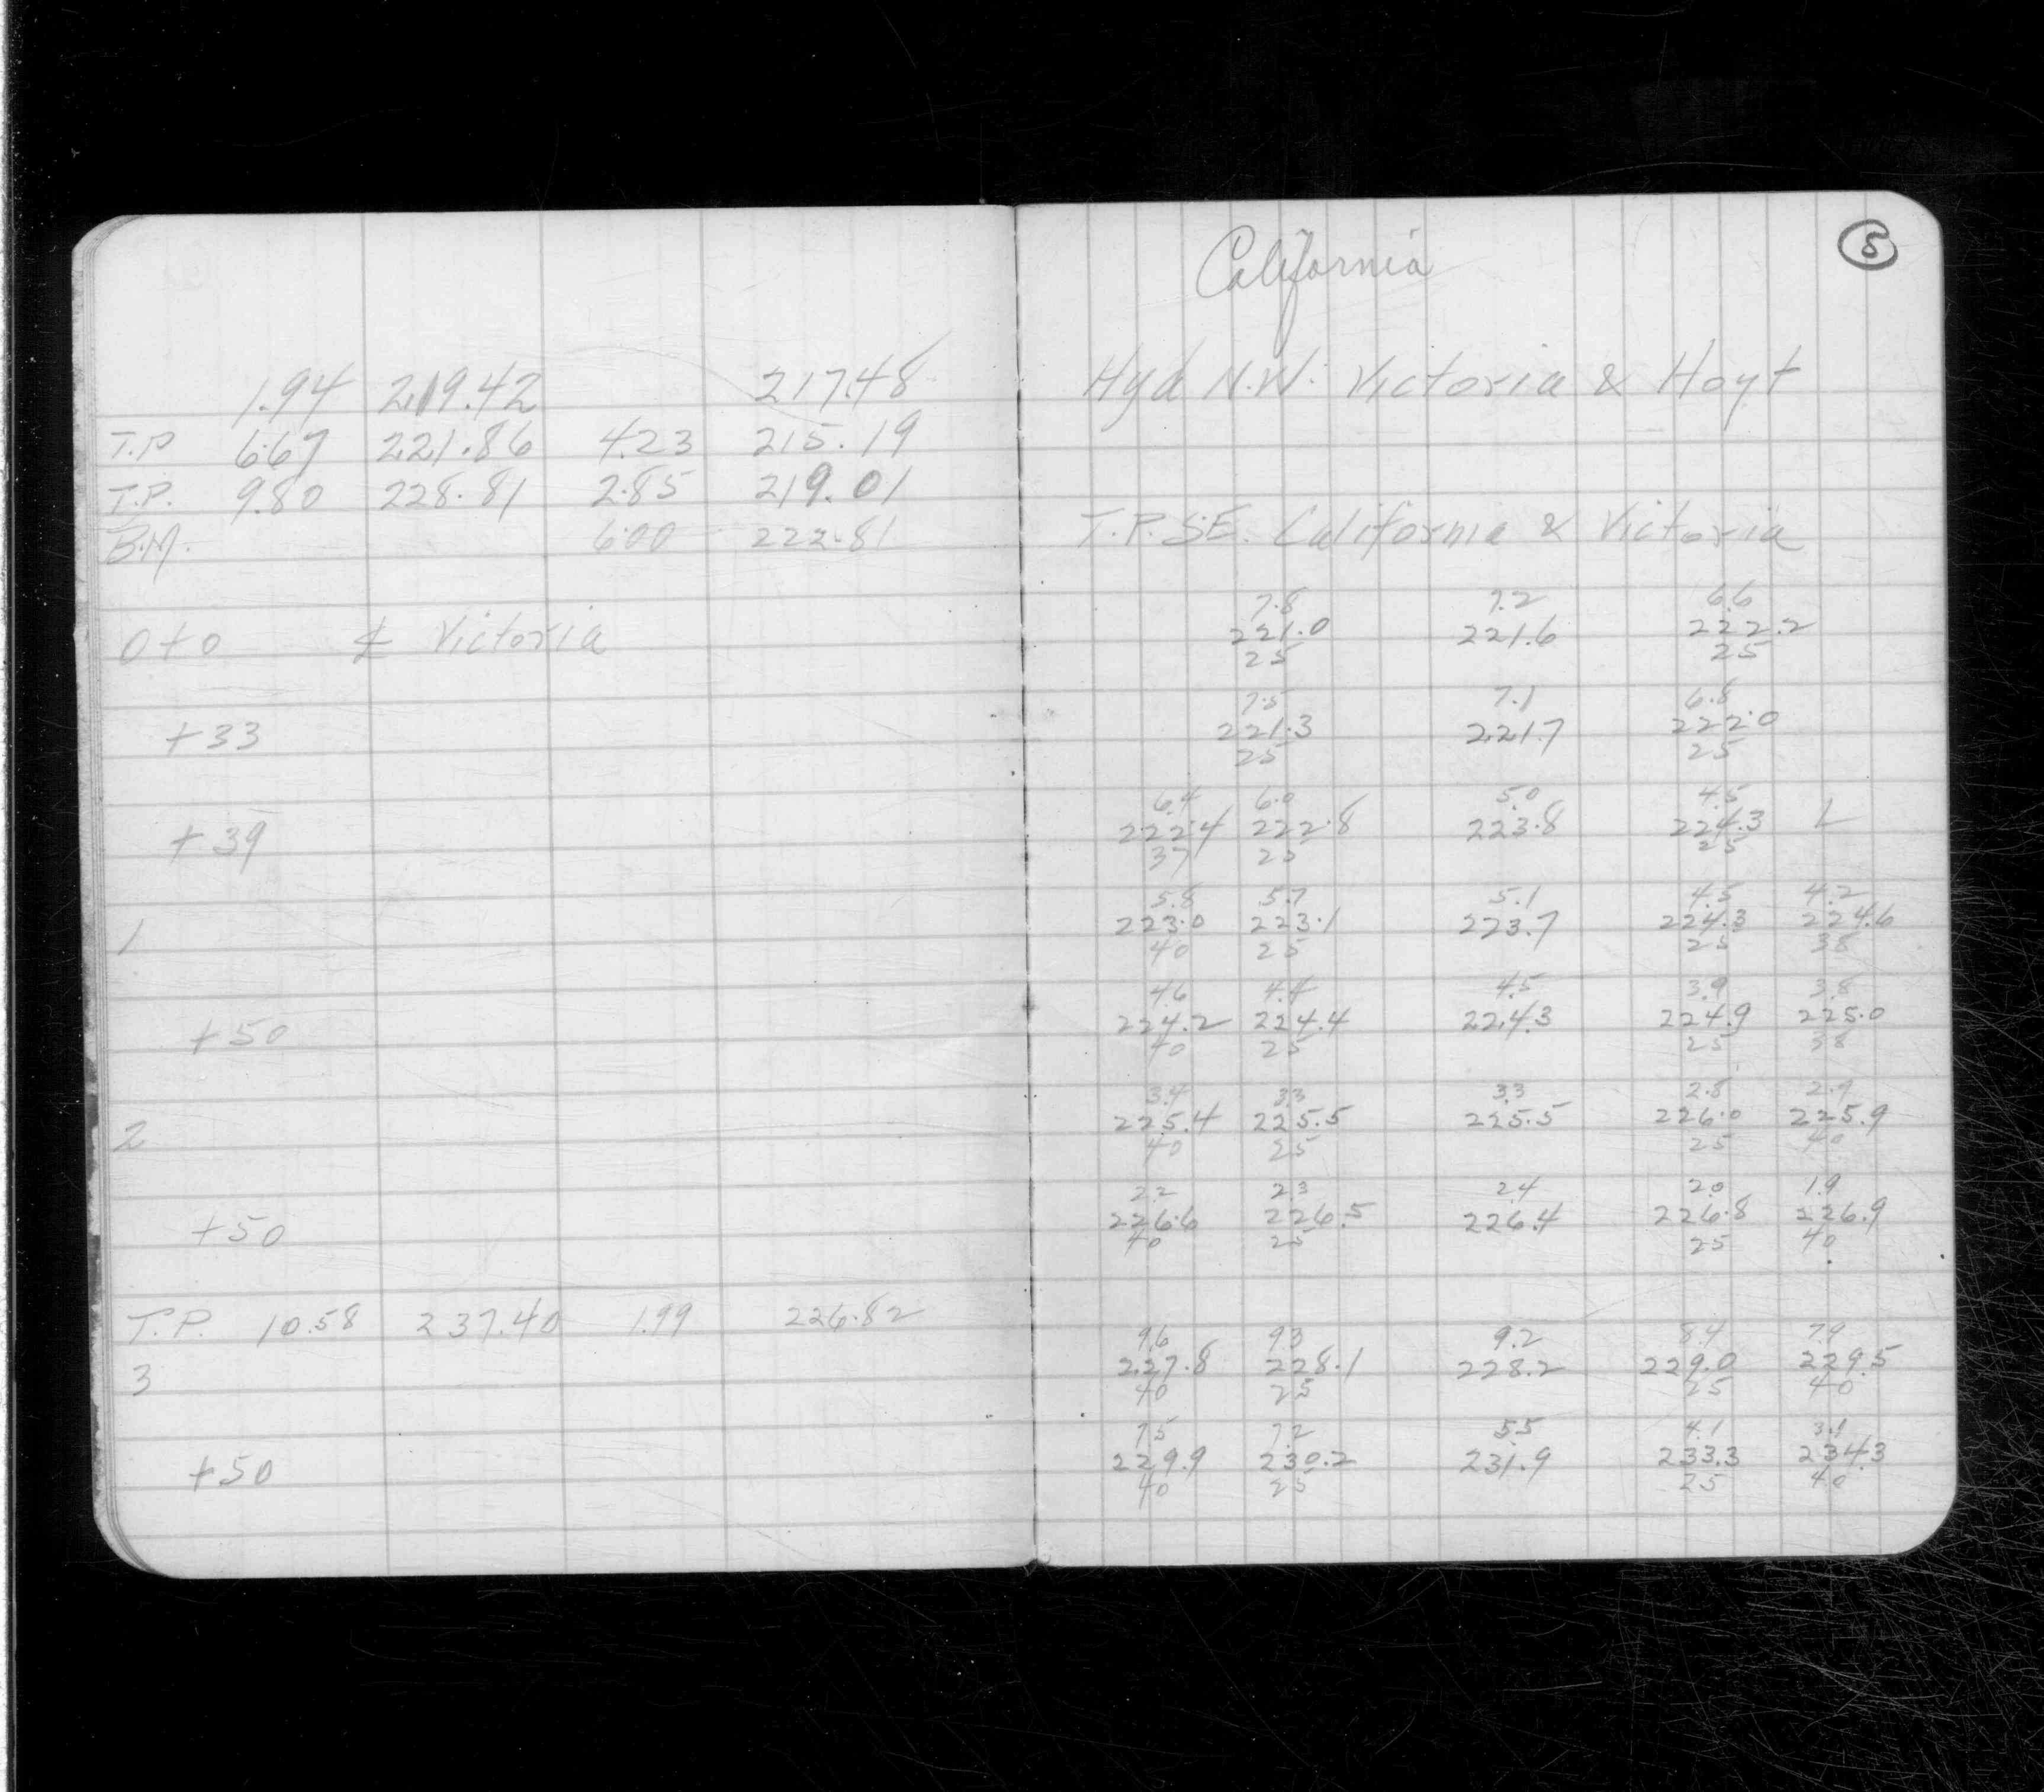 California
5
1.94 219.42 217.48 Hyd N.W. Victoria & Hoyt
T.P 6.67 221.86 4.23 215.19
T.P. 9.80 228.81 2.85 219.01
B.M. 6.00 222.81 T.P. S.E. California & Victoria
7.8 7.2 6.6
0+0 ℄ Victoria 221.0 221.6 222.2
25 25
7.5 7.1 6.8
+33 221.3 221.7 222.0
25 25
6.4 6.0 5.0 4.5
+39 222.4 222.8 223.8 224.3 L
37 25 25
5.8 5.7 5.1 4.5 4.2
1 223.0 223.1 223.7 224.3 224.6
40 25 25 38
4.6 4.4 4.5 3.9 3.8
+50 224.2 224.4 224.3 224.9 225.0
40 25 25 38
3.4 3.3 3.3 2.8 2.9
2 225.4 225.5 225.5 226.0 225.9
40 25 25 40
2.2 2.3 2.4 2.0 1.9
+50 226.6 226.5 226.4 226.8 226.9
40 25 25 40
T.P. 10.58 237.40 1.99 226.82
9.6 9.3 9.2 8.4 7.9
3 227.8 228.1 228.2 229.0 229.5
40 25 25 40
7.5 7.2 5.5 4.1 3.1
+50 229.9 230.2 231.9 233.3 234.3
40 25 25 40